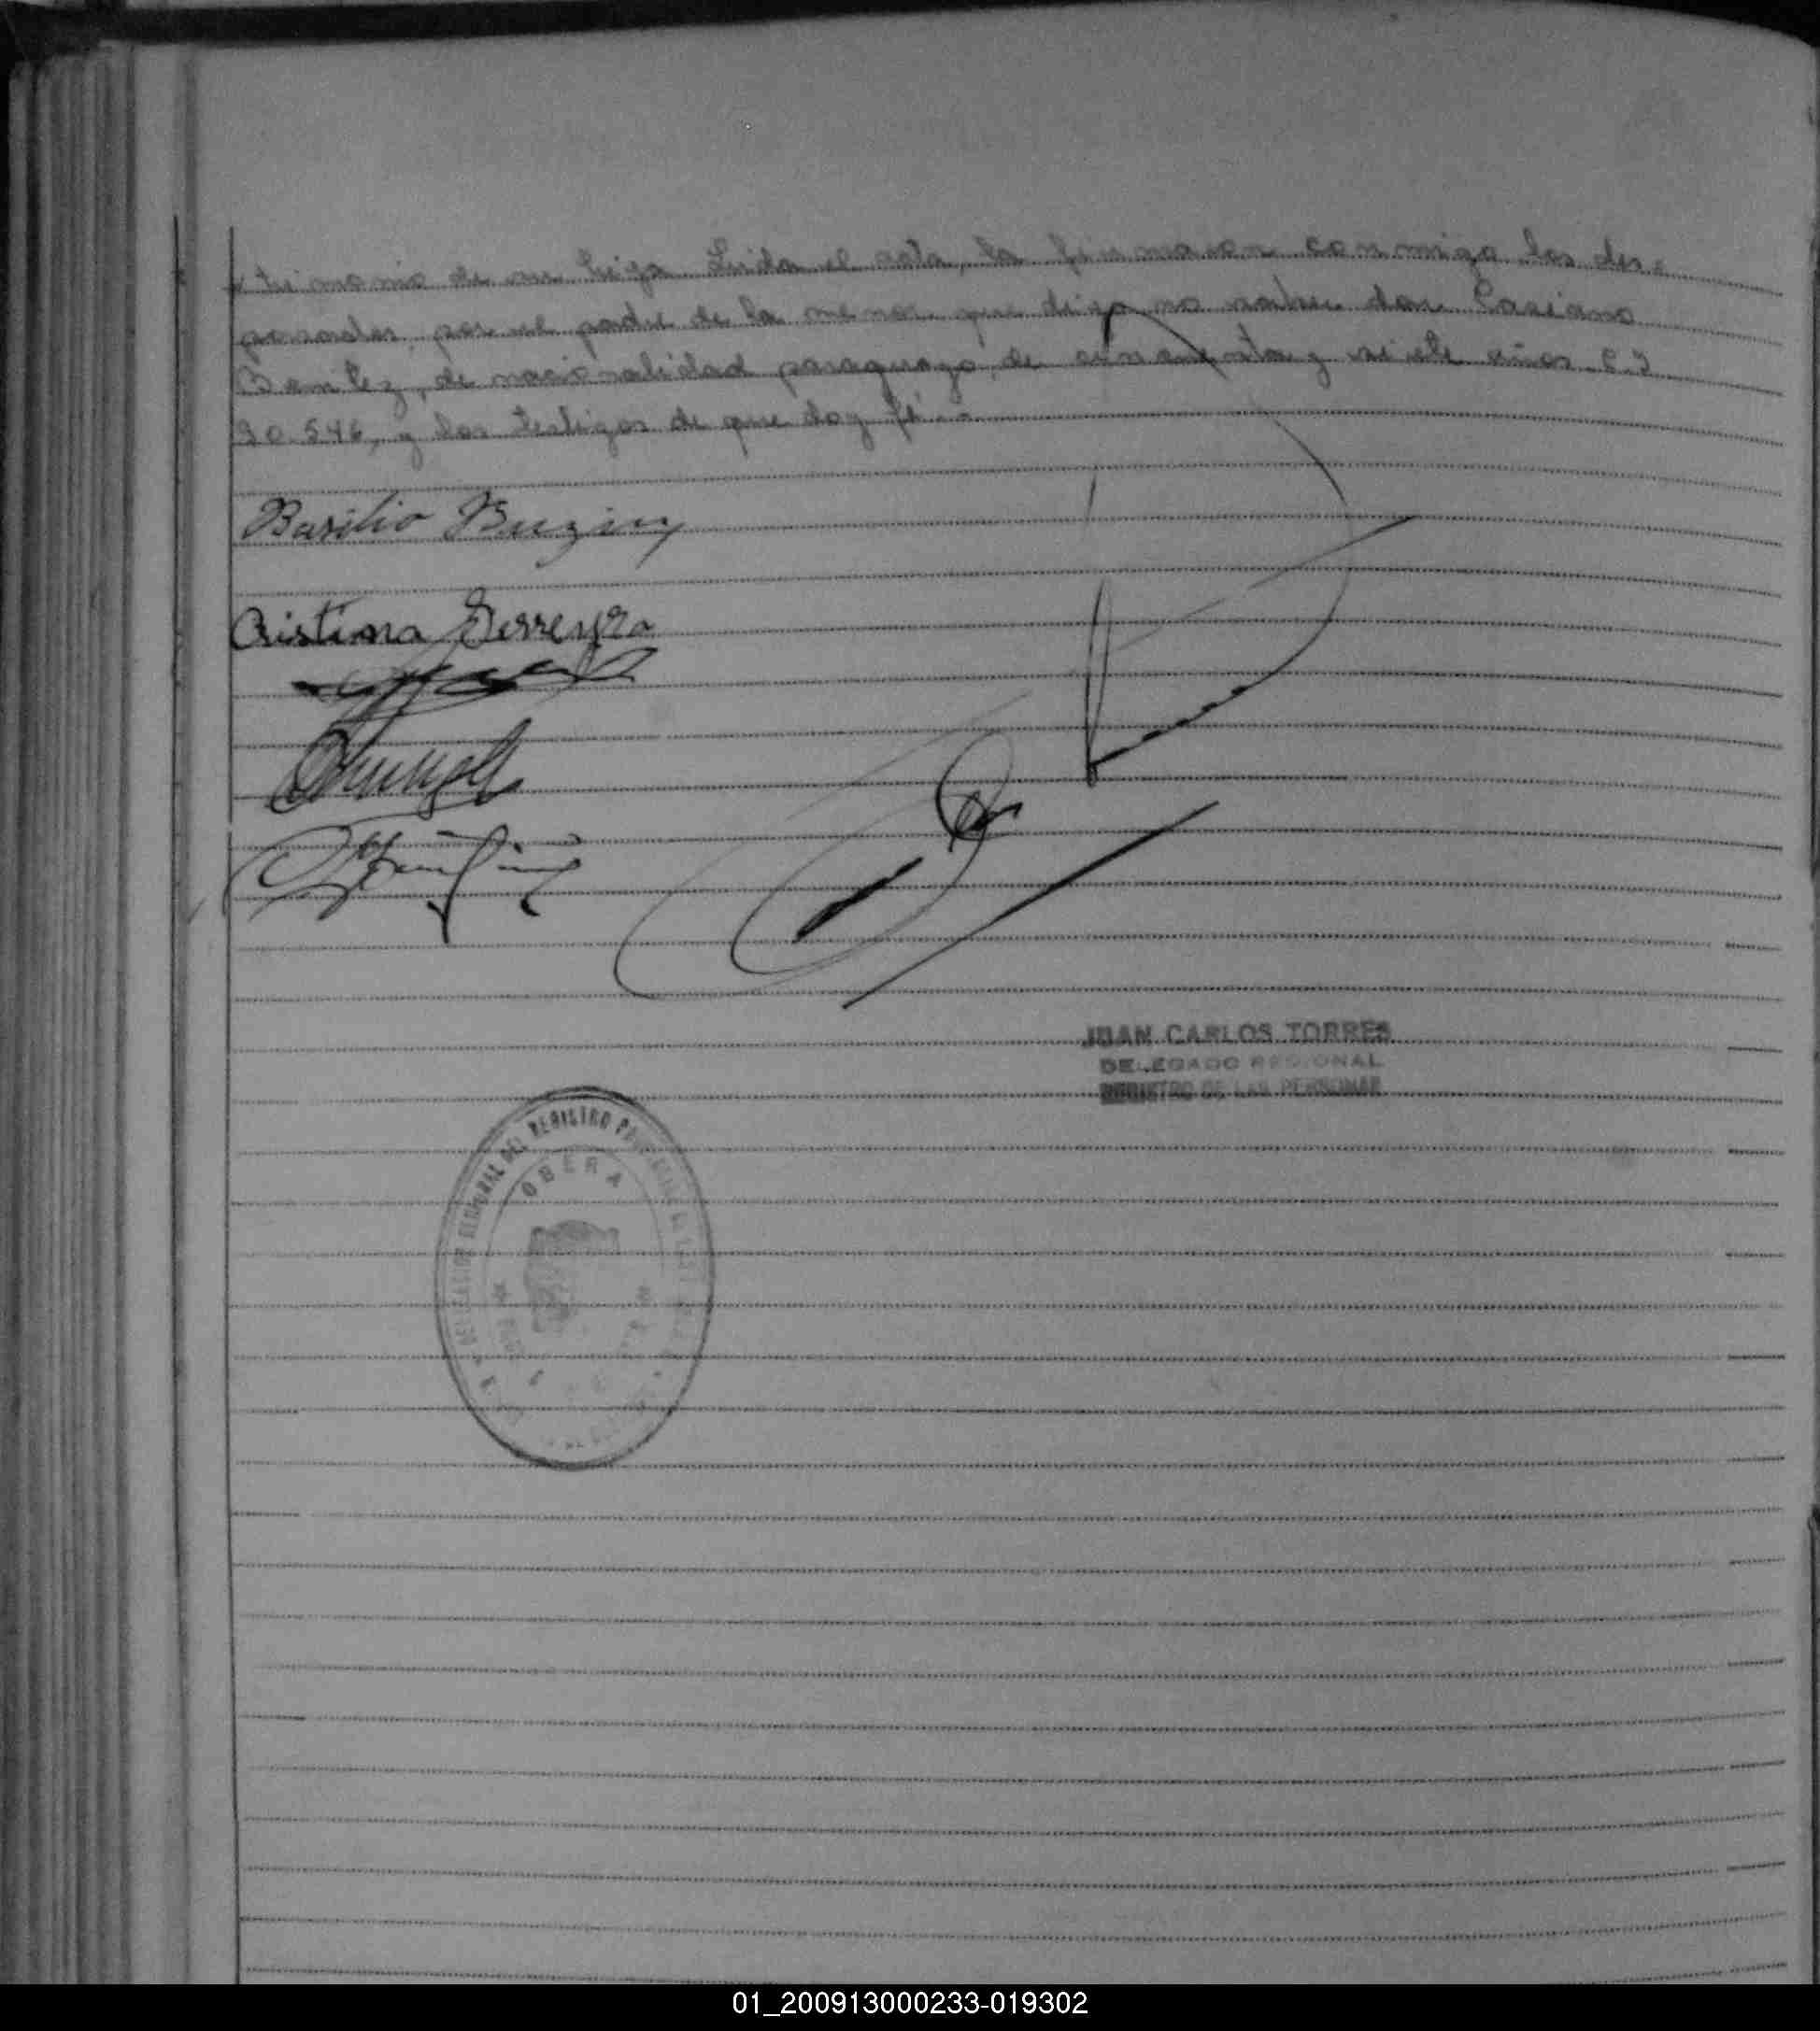 trimonio de su hija. Leida el acta, la firmaron conmigo los des-
posados, por el padre de la menor que dijo no saber don Casiano
Benitez, de nacionalidad paraguayo, de cincuenta y siete años C.I
90.546, y los testigos de que doy fé.-
Basilio
Cristina Ferreyra
JUAN CARLOS TORRES
DELEGADO REGIONAL
REGISTRO DE LAS PERSONAS
DELEGACION REGIONAL DEL REGISTRO
OBERA
01_200913000233-019302